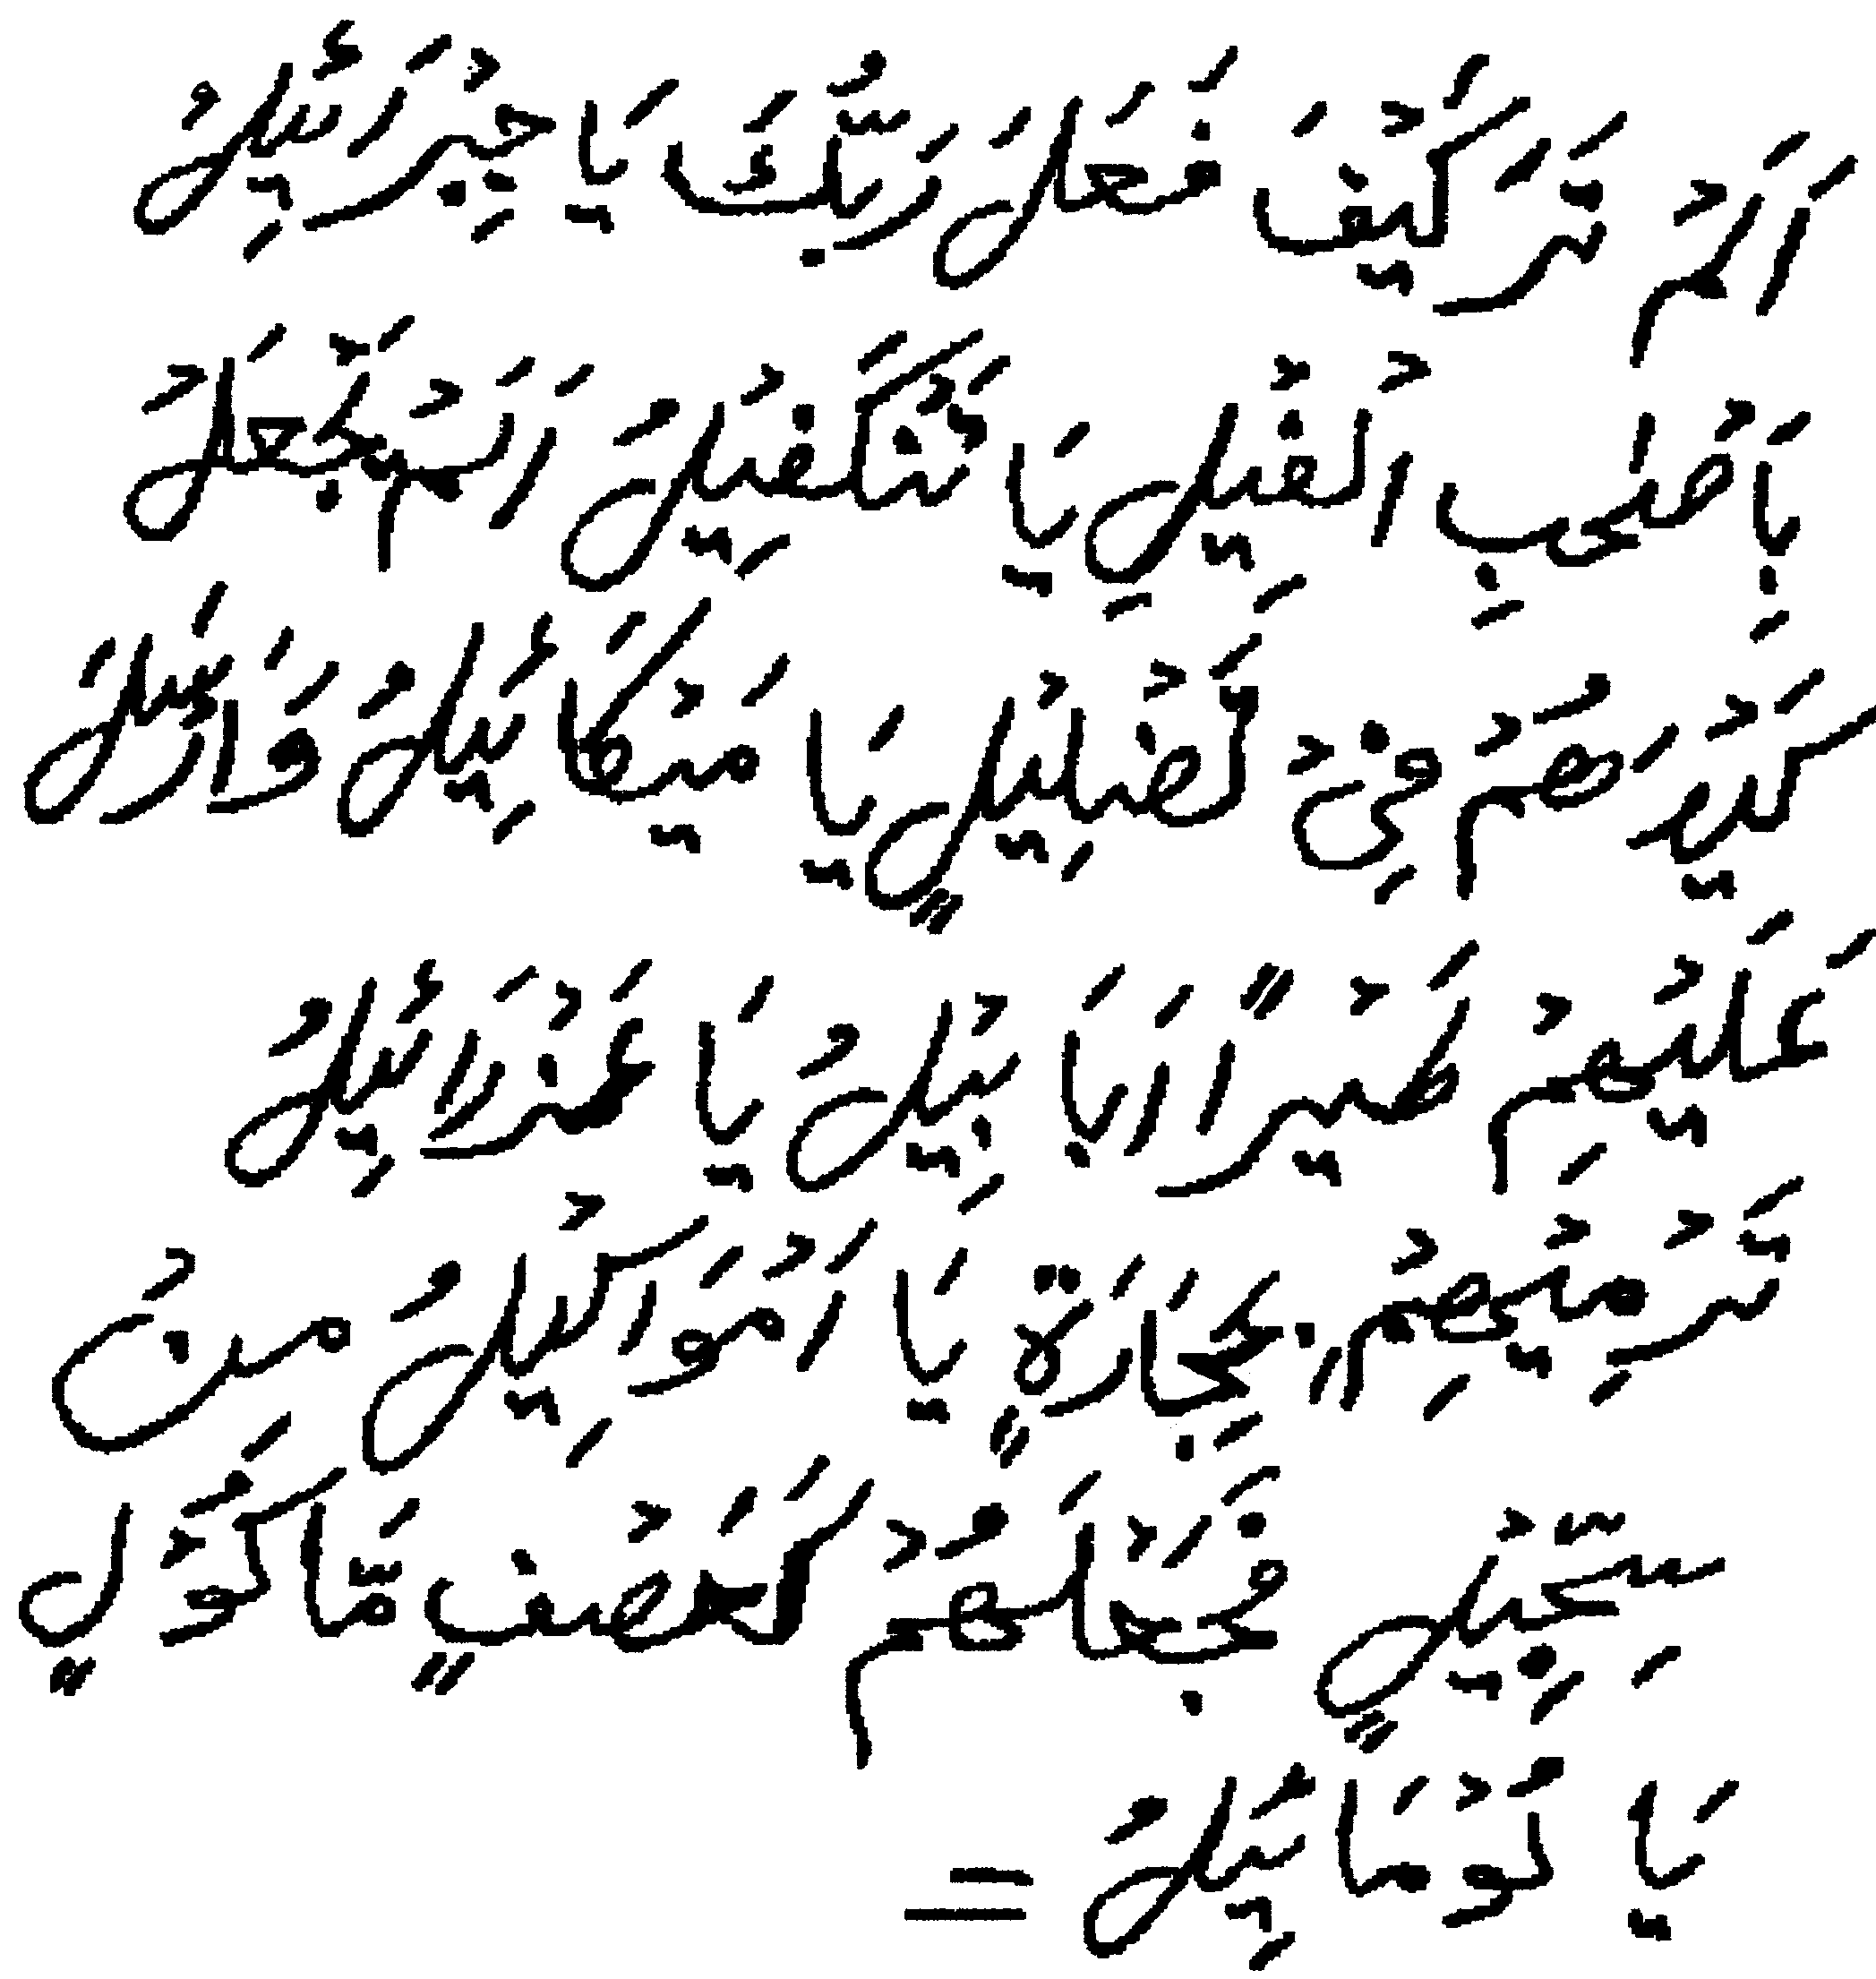 اَلَمْ تَرَ كَيْفَ فَعَلَ رَبُّكَ يَا جِبْرَائِيْلُ
بِاَصْحٰبِ الْفِيْلِ يَا تَنْكَفِيْلُ اَلَمْ يَجْعَلْ
كَيْدَهُمْ فِيْ تَضْلِيْلٍ يَا مَيْكَائِيْلُ وَاَرْسَلَ
عَلَيْهِمْ طَيْرًا اَبَابِيْلَ يَا عَزْرَائِيْلُ
تَرْمِيْهِمْ بِحِجَارَةٍ يَا اَمْوَاكِيْلُ مِنْ
سِجِّيْلٍ فَجَعَلَهُمْ كَعَصْفٍ مَّاكُوْلٍ
يَا لُوْمَائِيْلُ =